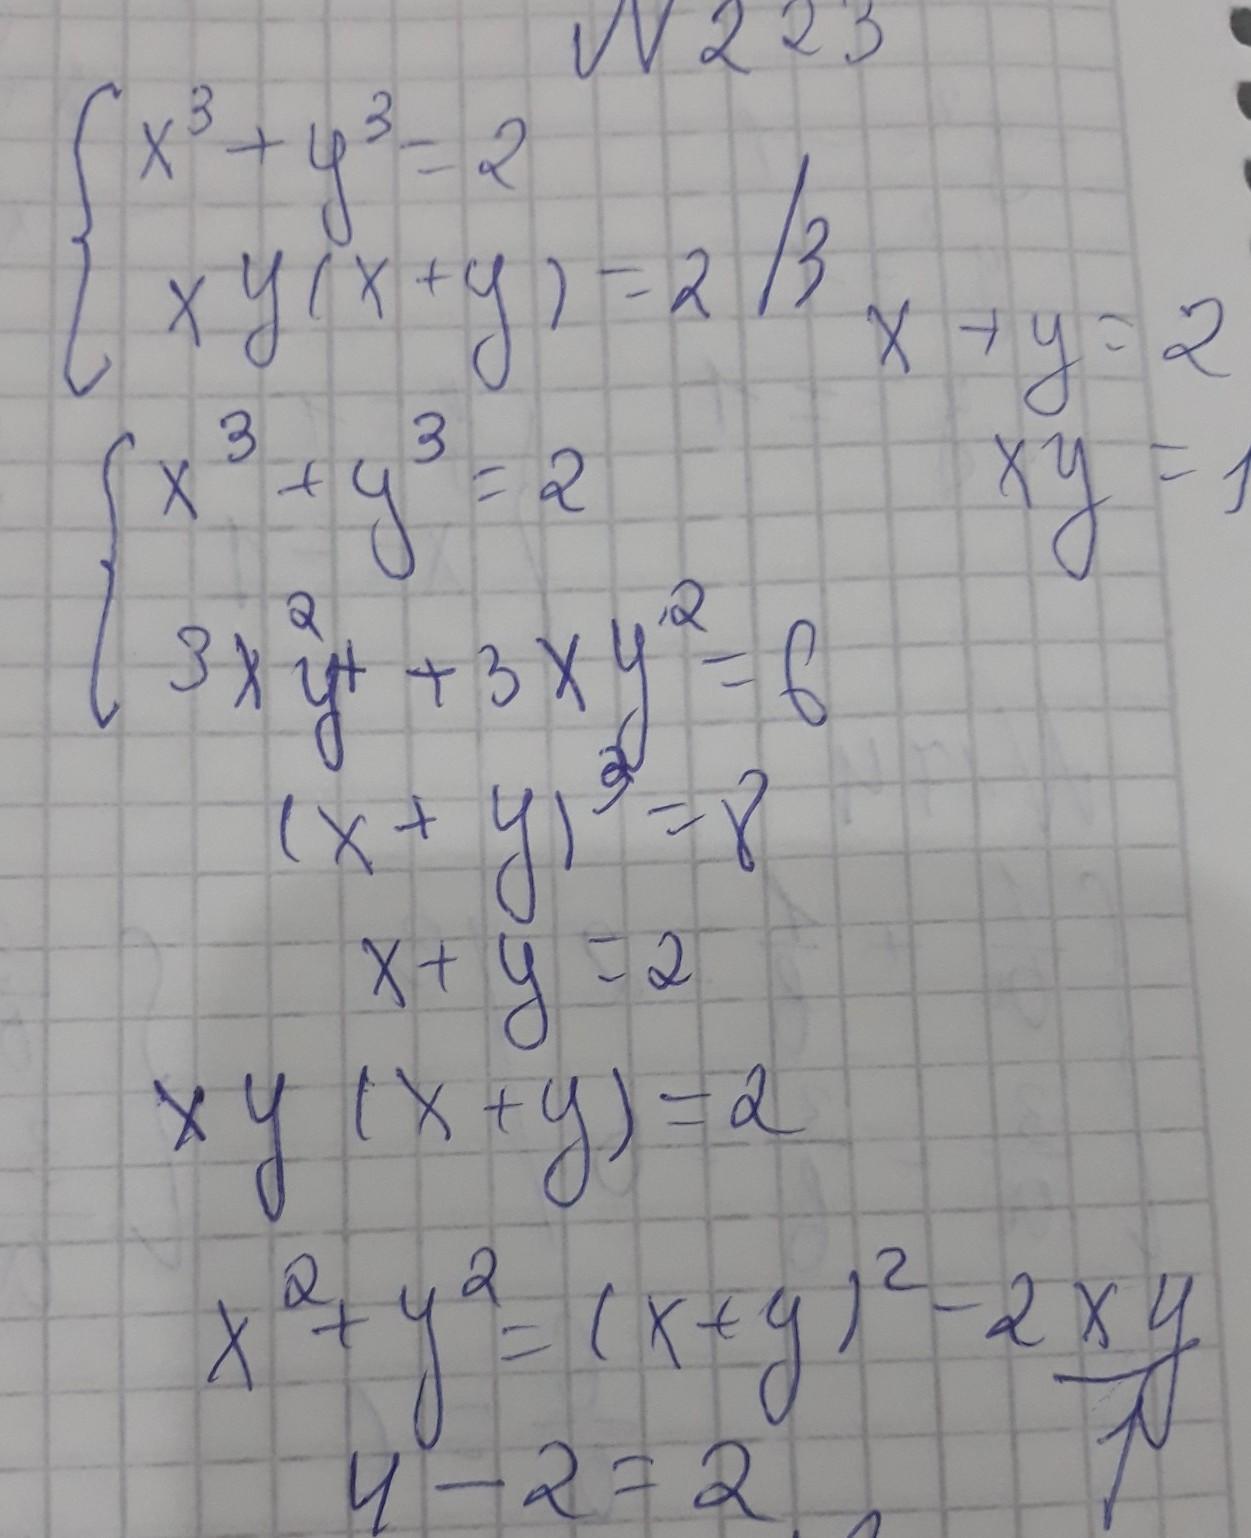 N 223
x³ + y³ = 2
xy(x + y) = 2 /3
x + y = 2
xy = 1
x³ + y³ = 2
3x²y + 3xy² = 6
(x + y)³ = 8
x + y = 2
xy (x + y) = 2
x² + y² = (x + y)² - 2xy
4 - 2 = 2